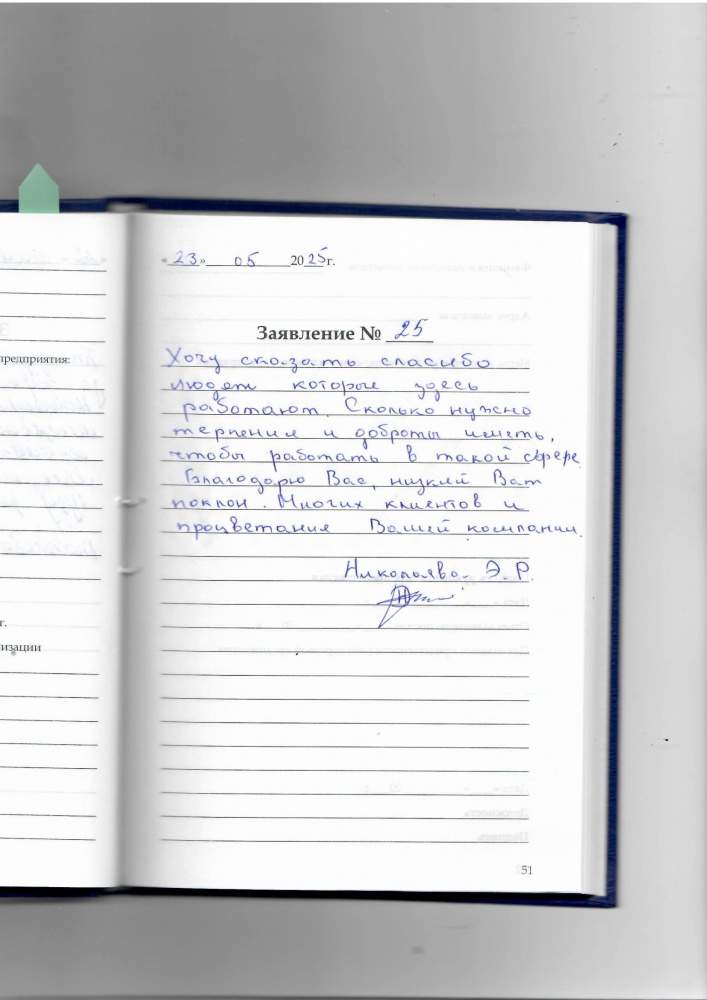 предприятия:
г.
изации
«23» 05 2025г.
Заявление № 25
Хочу сказать спасибо
людям которые здесь
работают. Сколько нужно
терпения и доброты иметь,
чтобы работать в такой сфере.
Благодарю Вас, низкий Вам
поклон. Многих клиентов и
процветания Вашей компании.
Николаева Э. Р.
51